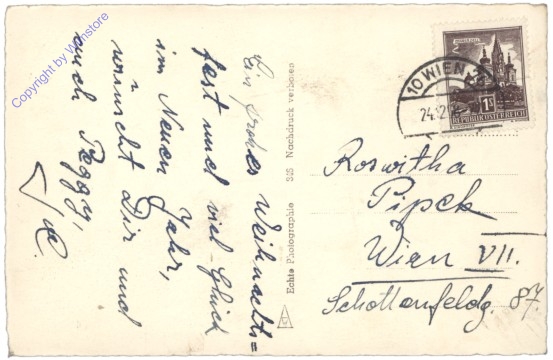 Ein frohes Weihnachts=
fest und viel Glück
im Neuen Jahr,
wünscht Dir und
auch Peggy,
Echte Photographie 325 Nachdruck verboten
10 WIEN
24.12
1S
REPUBLIK ÖSTERREICH
Roswitha
Pipek
Wien VII.
Schottenfeldg. 87.
copyright by Wehrstore